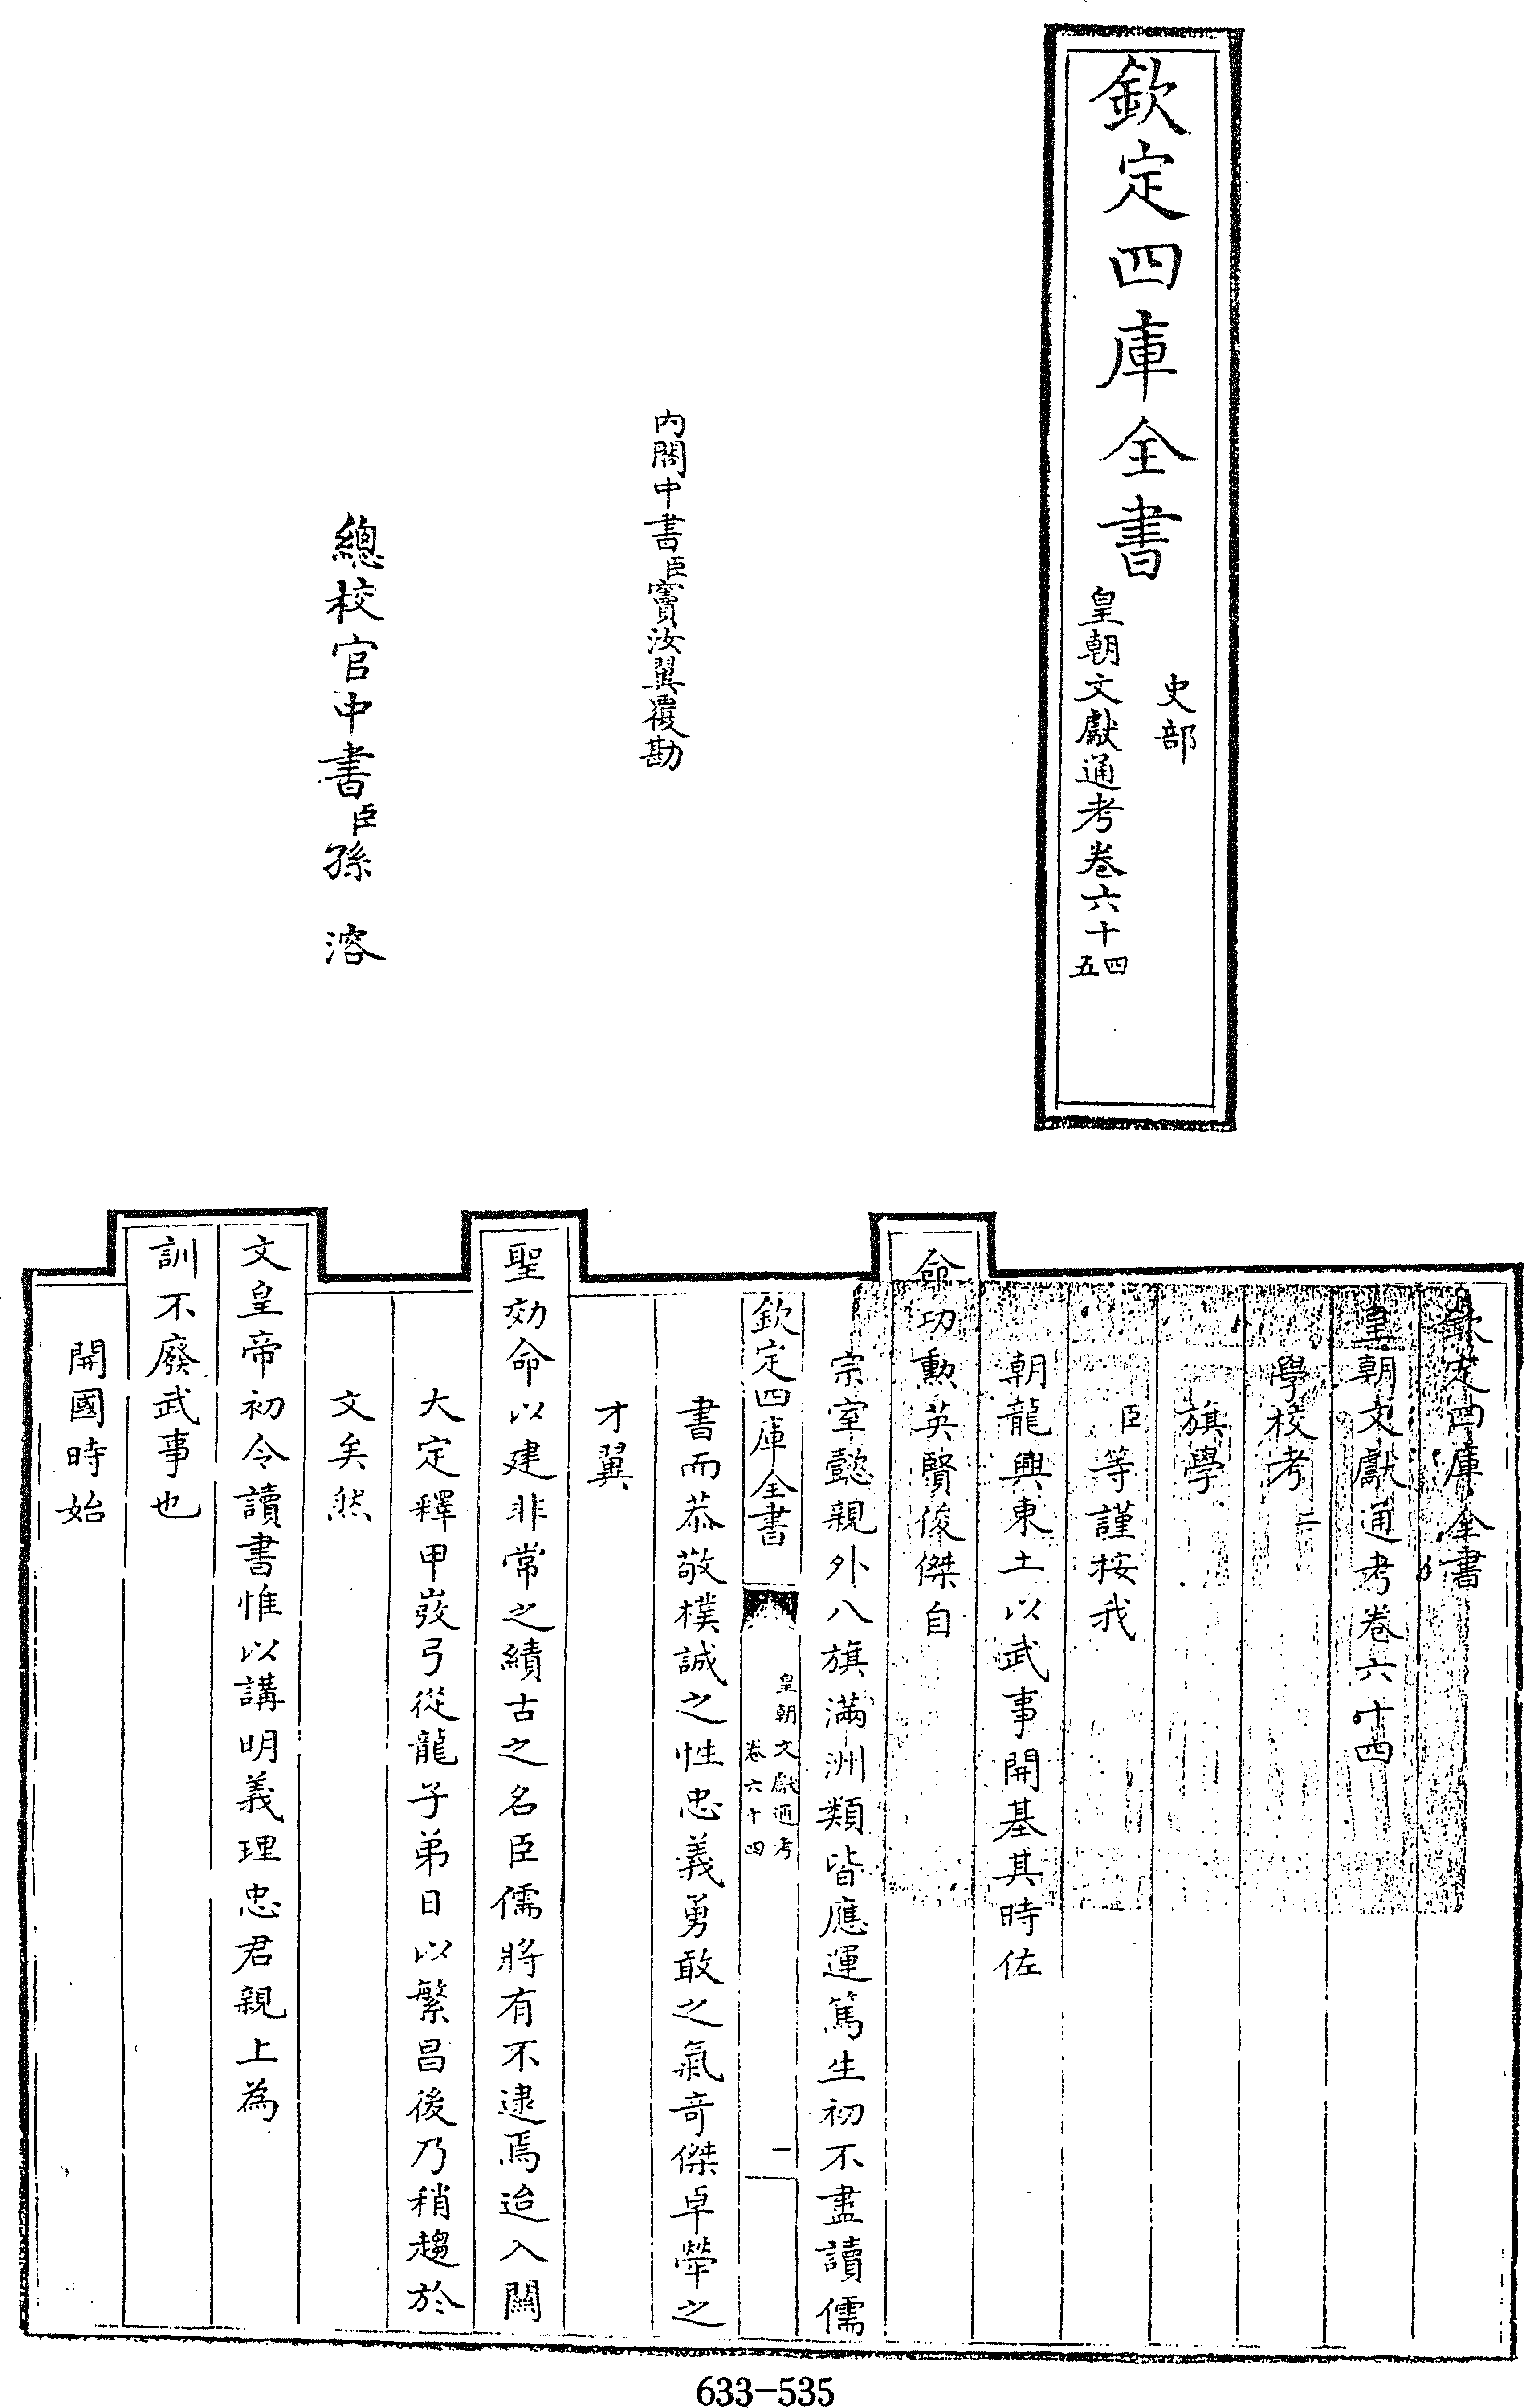 欽定四庫全書
史部
皇朝文獻通考卷六十四五
內閣中書臣竇汝翼覆勘
總校官中書臣孫溶
欽定四庫全書
皇朝文獻通考卷六十四
學校考二
旗學
臣等謹按我
朝龍興東土以武事開基其時佐
命功勲英賢俊傑自
宗室懿親外八旗滿洲類皆應運篤生初不盡讀儒
欽定四庫全書
皇朝文獻通考
卷六十四
一
書而恭敬樸誠之性忠義勇敢之氣奇傑卓犖之
才翼
聖効命以建非常之績古之名臣儒將有不逮焉迨入關
大定釋甲弢弓從龍子弟日以繁昌後乃稍趨於
文矣然
文皇帝初令讀書惟以講明義理忠君親上為
訓不廢武事也
開國時始
633-535